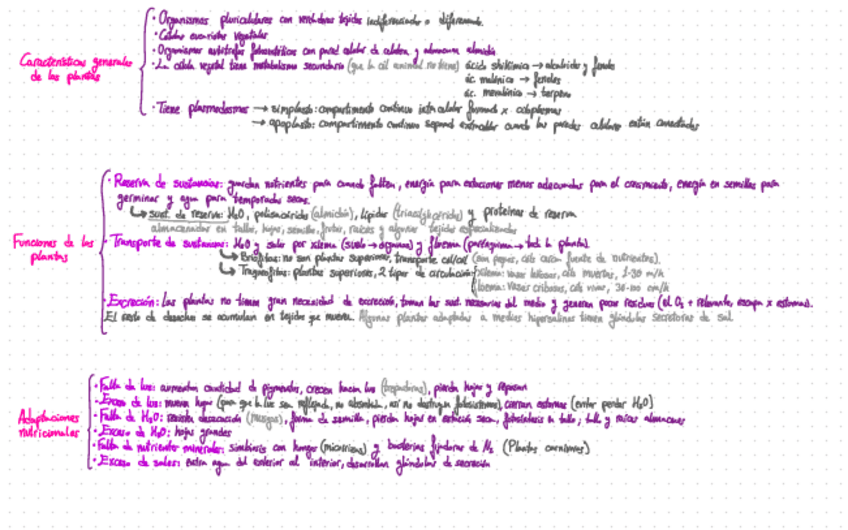 Características generales de las plantas
· Organismos pluricelulares con verdaderos tejidos indiferenciado o diferenciado.
· Células eucariotas vegetales
· Organismos autótrofos fotosintéticos con pared celular de celulosa y almacenan almidón
· La célula vegetal tiene metabolismo secundario (que la cél animal no tiene) ácido shikímico → alcaloides y fenoles
ác. malónico → fenoles
ác. mevalónico → terpenos
· Tiene plasmodesmos → simplasto: compartimento continuo intracelular formado x citoplasmas
→ apoplasto: compartimento continuo extracelular cuando las paredes celulares están conectadas
Funciones de las plantas
· Reserva de sustancias: guardan nutrientes para cuando falten, energía para estaciones menos adecuadas para el crecimiento, energía en semillas para
germinar y agua para temporadas secas.
↳ sust. de reserva: H₂O, polisacáridos (almidón), lípidos (triacilglicéridos) y proteínas de reserva
almacenadas en tallos, hojas, semillas, frutos, raíces y algunos tejidos especializados
· Transporte de sustancias: H₂O y sales por xilema (suelo → órganos) y floema (parénquima → toda la planta).
↳ Briófitas: no son plantas superiores, transporte cél/cél (son peques, cerca fuente de nutrientes).
↳ Traqueófitas: plantas superiores, 2 tipos de circulación xilema: vasos leñosos, céls muertas, 1-30 m/h
floema: vasos cribosos, céls vivas, 30-100 cm/h
· Excreción: Las plantas no tienen gran necesidad de excreción, toman las sust. necesarias del medio y generan pocos residuos (el O₂ + relevante, escapa x estomas).
El resto de desechos se acumulan en tejidos que mueren. Algunas plantas adaptadas a medios hipersalinos tienen glándulas secretoras de sal
Adaptaciones nutricionales
· Falta de luz: aumentan cantidad de pigmentos, crecen hacia luz (trepadoras), pierden hojas y reposan
· Exceso de luz: mueven hojas (para que la luz sea reflejada, no absorbida, así no destruyen fotosistemas), cierran estomas (evitar perder H₂O)
· Falta de H₂O: resisten desecación (musgos), forma de semilla, pierden hojas en estación seca, fotosíntesis en tallo, tallo y raíces almacenan
· Exceso de H₂O: hojas grandes
· Falta de nutrientes minerales: simbiosis con hongos (micorrizas) y bacterias fijadoras de N₂ (Plantas carnívoras)
· Exceso de sales: entra agua del exterior al interior, desarrollan glándulas de secreción